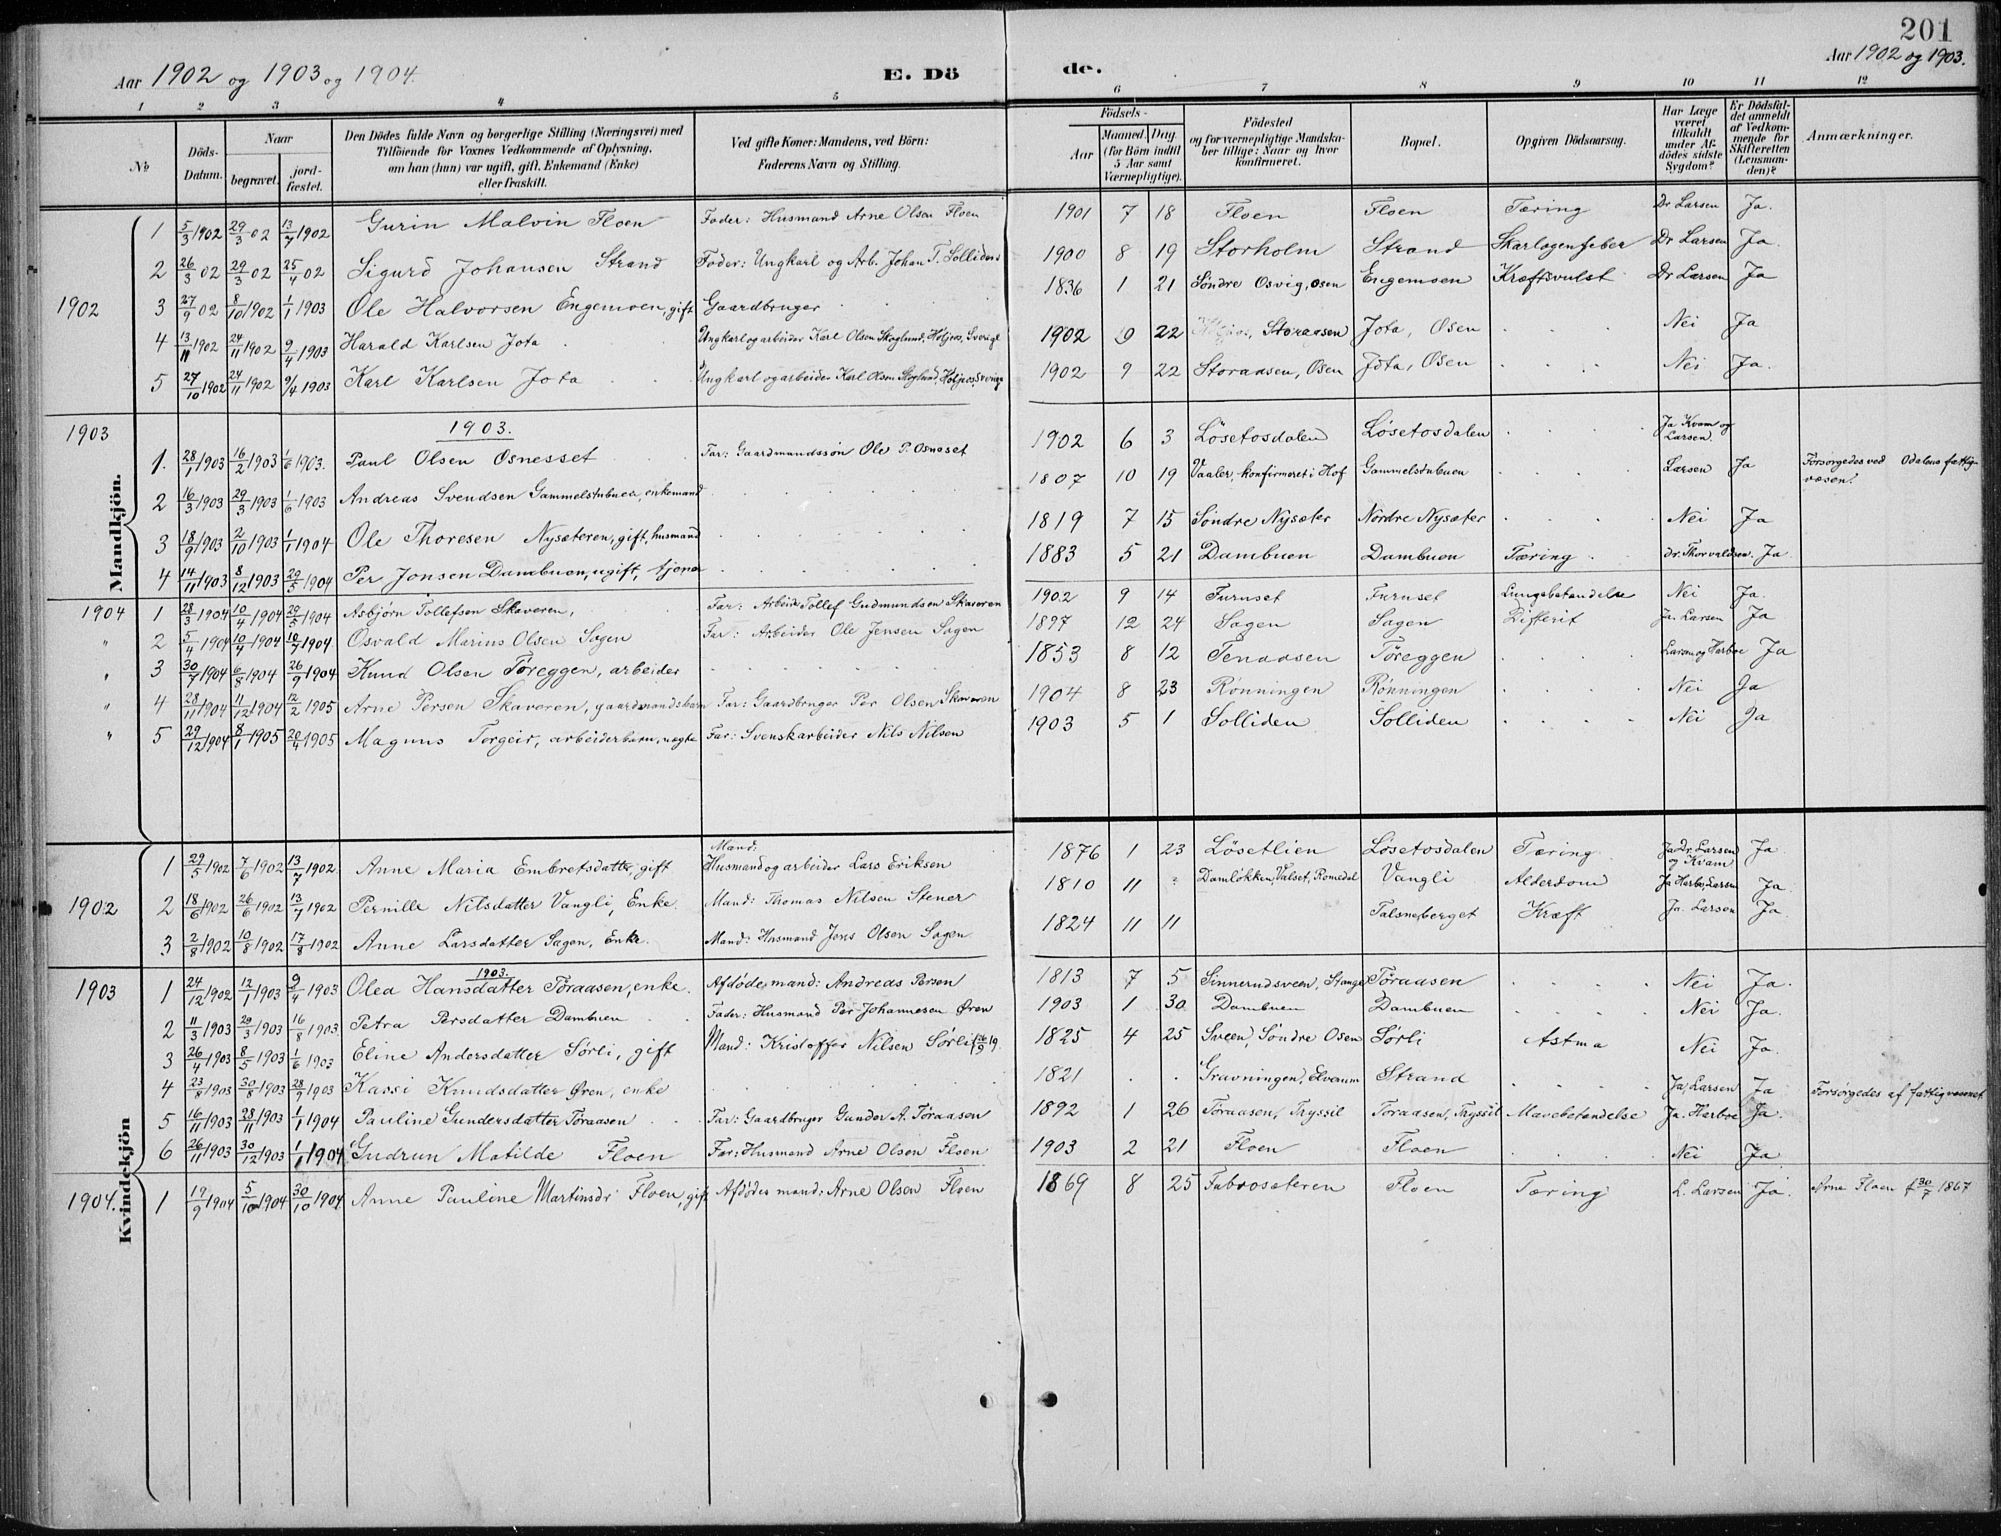 201
Aar 1902 og 1903 og 1904.
E. Dö
de.
Aar 1902 og 1903.
1 2 3 4 5 6 7 8 9 10 11 12
No
Döds-Datum.
Naar begravet. jord-fæstet.
Den Dödes fulde Navn og borgerlige Stilling (Næringsvei) med
Tilföiende for Voxnes Vedkommende af Oplysning,
om han (hun) var ugift, gift, Enkemand (Enke)
eller fraskilt.
Ved gifte Koner: Mandens, ved Börn:
Faderens Navn og Stilling.
Födsels-
Aar
Maaned. Dag.
(for Börn indtil
5 Aar samt
Værnepligtige).
Födested
og for værnepligtige Mandska-
ber tillige: Naar og hvor
konfirmeret.
Bopæl.
Opgiven Dödsaarsag.
Har Læge
været
tilkaldt
under Af-
dödes sidste
Sygdom?
Er Dödsfal-
det anmeldt
af Vedkom-
mende for
Skifteretten
(Lensman-
den)?
Anmærkninger.
Mandkjön.
1902
1 5/3 1902 29/3 02 13/7 1902 Gurin Malvin Floen Fader: Husmand Arne Olsen Floen 1901 7 18 Floen Floen Tæring Dr Larsen Ja.
2 26/3 02 29/3 02 25/4 02 Sigurd Johansen Strand Fader: Ungkarl og Arb. Johan T. Solliden 1900 8 19 Storholm Strand Skarlagenfeber Dr Larsen Ja.
3 27/9 02 8/10 1902 1/1 1903 Ole Halvorsen Engemoen, gift Gaardbruger 1836 1 21 Söndre Osvig, Osen Engemoen Kræftsvulst Dr Larsen Ja
4 13/11 1902 24/11 1902 9/4 1903 Harald Karlsen Jota Ungkarl og arbeider Karl Olsen Skoglund, Höljes, Sverige 1902 9 22 Storaasen Jota, Osen Nei Ja
5 27/10 1902 24/11 1902 9/4 1903 Karl Karlsen Jota Ungkarl og arbeider Karl Olsen Skoglund, Höljes Sverige 1902 9 22 Storaasen, Osen Jota, Osen Nei Ja.
1903
1903.
1. 28/1 1903 16/2 1903 1/6 1903. Paul Olsen Osnesset Far: Gaardmandssön Ole P. Osneset 1902 6 3 Lösetosdalen Lösetosdalen Ja Kvam og Larsen.
2 16/3 1903 29/3 1903 1/6 1903 Andreas Svendsen Gammelstubuen, enkemand 1807 10 19 Vaaler, konfirmeret i Hof Gammelstubuen Larsen Ja Forsörgedes ved Odalens fattigvæsen.
3 18/9 1903 2/10 1903 1/1 1904 Ole Thoresen Nysæteren, gift, husmand 1819 7 15 Söndre Nysæter Nordre Nysæter Nei Ja
4 14/11 1903 8/12 1903 29/5 1904 Per Jonsen Dambuen, ugift, tjener 1883 5 21 Dambuen Dambuen Tæring dr. Thorvaldsen. Ja
1904
1 28/3 1904 10/4 1904 29/5 1904 Asbjörn Tollefsen Skaveren, Far: Arbeider Tollef Gudmundsen Skaveren 1902 9 14 Furuset Furuset Lungebetændelse Nei Ja
" 2 5/4 1904 10/4 1904 10/7 1904 Osvald Marius Olsen Sagen Far: Arbeider Ole Jensen Sagen 1897 12 24 Sagen Sagen Difterit Ja. Larsen Ja
" 3 30/7 1904 6/8 1904 26/9 1904 Knud Olsen Töreggen, arbeider 1853 8 12 Tenaasen Töreggen Larsen og Harboe Ja
" 4 28/11 1904 11/12 1904 12/2 1905 Arne Persen Skaveren, gaardmandsbarn Far: Gaardbruger Per Olsen Skaveren 1904 8 23 Rönningen Rönningen Nei Ja
" 5 29/12 1904 8/1 1905 20/4 1905 Magnus Torgeir, arbeiderbarn, uægte Far: Svenskarbeider Nils Nilsen 1903 5 1 Solliden Solliden Nei Ja
Kvindekjön
1902
1 29/5 1902 7/6 1902 13/7 1902. Anne Maria Embretsdatter, gift Mand: Husmand og arbeider Lars Eriksen 1876 1 23 Lösetlien Lösetosdalen Tæring Ja Dr. Larsen og Kvam Ja
2 18/6 1902 26/6 1902 13/7 1902 Pernille Nilsdatter Vangli, Enke. Mand: Thomas Nilsen Stener 1810 11 ? Damlökken, Valset, Romedal Vangli Alderdom Ja Harbo, Larsen Ja.
3 2/8 1902 10/8 1902 17/8 1902 Anne Larsdatter Sagen, Enke. Mand: Husmand Jens Olsen Sagen 1824 11 11 Talsneberget Kræft Ja. Larsen Ja.
1903
1903.
1 24/12 1902 12/1 1903 9/4 1903 Olea Hansdatter Töraasen, enke. Afdöde mand: Andreas Persen 1813 7 5 Sinnerudsveen, Stange Töraasen Nei Ja.
2 11/3 1903 29/3 1903 16/8 1903. Petra Persdatter Dambuen Fader: Husmand Per Johannesen Øren 1903 1 30 Dambuen Dambuen Nei Ja.
3 26/4 1903 8/5 1903 1/6 1903 Eline Andersdatter Sörli, gift Mand: Kristoffer Nilsen Sörli 1825 4 25 Sveen, Söndre Osen Sörli Astma Nei Ja.
4 23/8 1903 30/8 1903 28/9 1903 Kassi Knudsdatter Øren, enke 1821 Gravningen, Elverum Strand Ja, Larsen Ja Forsörgedes af fattigvæsenet
5 16/11 1903 28/11 1903 1/1 1904 Pauline Gundersdatter Töraasen Far: Gaardbruger Gunder A. Töraasen 1892 1 26 Töraasen, Tryssil Toraasen, Tryssil Mavebetændelse Ja. Harboe Ja.
6 26/11 1903 30/12 1903 1/1 1904 Gudrun Matilde Floen Far: Husmand Arne Olsen Floen 1903 2 21 Floen Floen Nei Ja
1904. 1 19/9 1904 5/10 1904 30/10 1904 Anne Pauline Martinsdr Floen, gift Afdödes mand: Arne Olsen Floen 1869 8 25 Fabrosæteren Floen Tæring L. Larsen Ja. Arne Floen f 30/7 1867